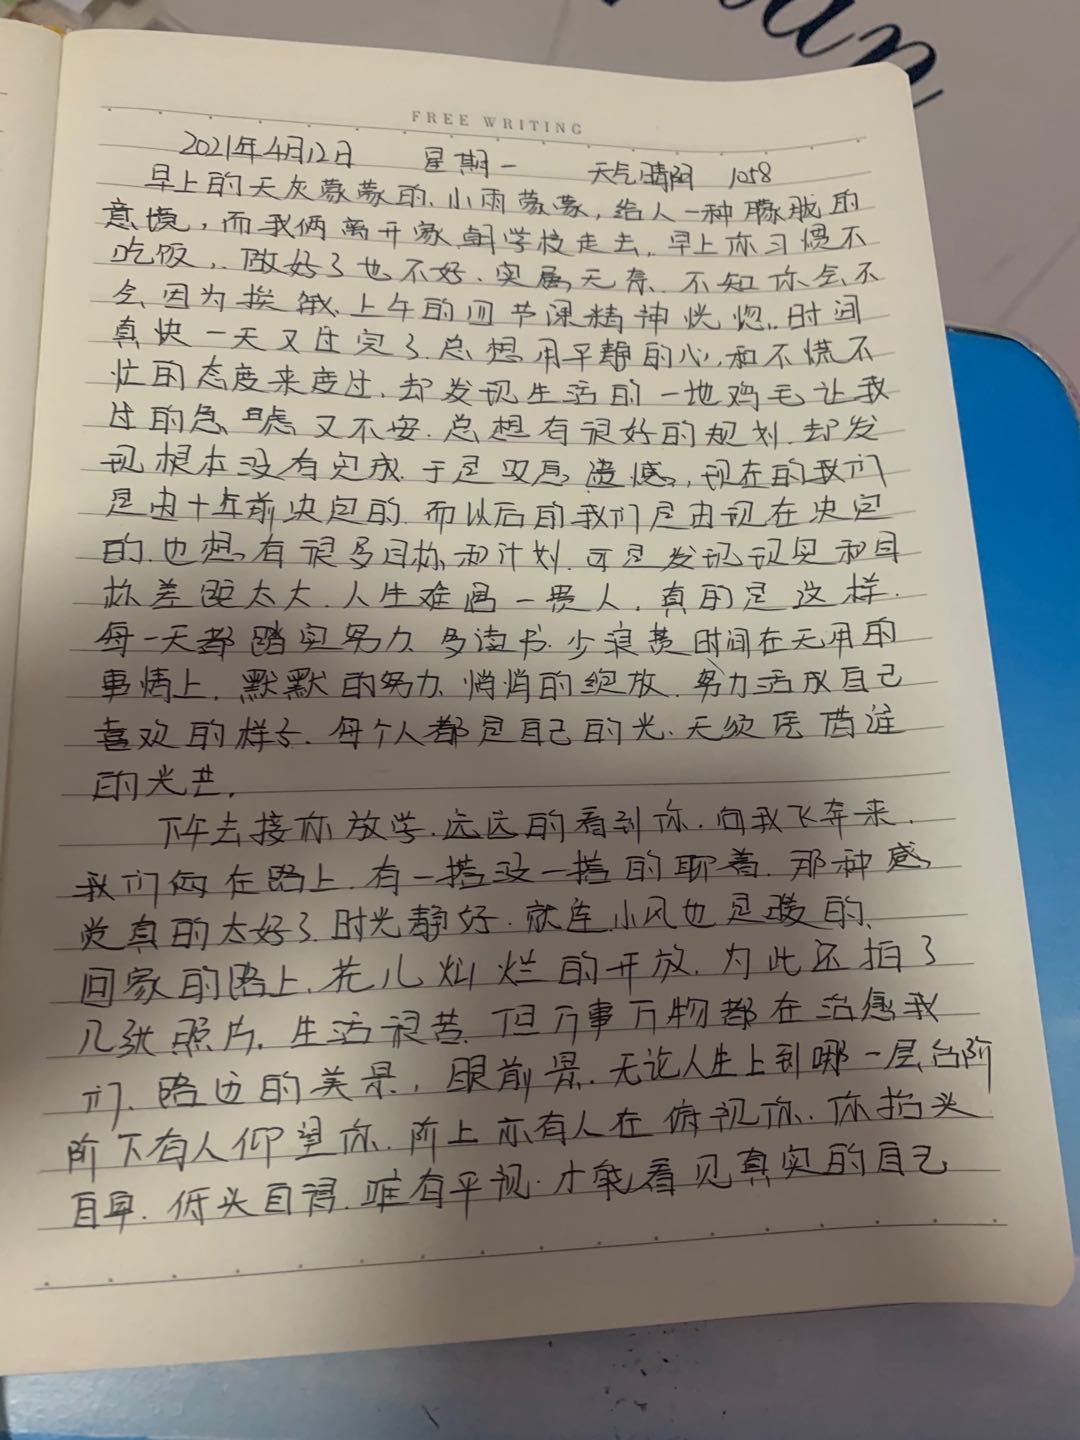 FREE WRITING
2021年4月12日 星期一 天气晴阴 1058
早上的天灰蒙蒙的、小雨蒙蒙,给人一种朦胧的
意境,而我俩离开家朝学校走去.早上你习惯不
吃饭,做好了也不好.实属无奈.不知你会不
会因为挨饿、上午的四节课精神恍惚.时间
真快一天又过完了.总想用平静的心和不慌不
忙的态度来度过.却发现生活的一地鸡毛让我
过的急虑又不安.总想有很好的规划.却发
现根本没有完成.于是叹息遗憾,现在的我们
是由十年前决定的.而以后的我们是由现在决定
的.也想有很多目标和计划.可是发现现实和目
标差距太大.人生难遇一贵人.真的是这样.
每一天都踏实努力 多读书.少浪费时间在无用的
事情上.默默的努力 悄悄的绽放.努力活成自己
喜欢的样子.每个人都是自己的光.无须凭借谁
的光芒.
下午去接你放学.远远的看到你.向我飞奔来.
我们俩在路上.有一搭没一搭的聊着.那种感
觉真的太好了.时光静好.就连小风也是暖的.
回家的路上.花儿灿烂的开放.为此还拍了
几张照片.生活很苦.但万事万物都在治愈我
们.路边的美景,眼前景.无论人生上到哪一层台阶
阶下有人仰望你.阶上亦有人在俯视你.你抬头
自卑.低头自得.唯有平视.才能看见真实的自己